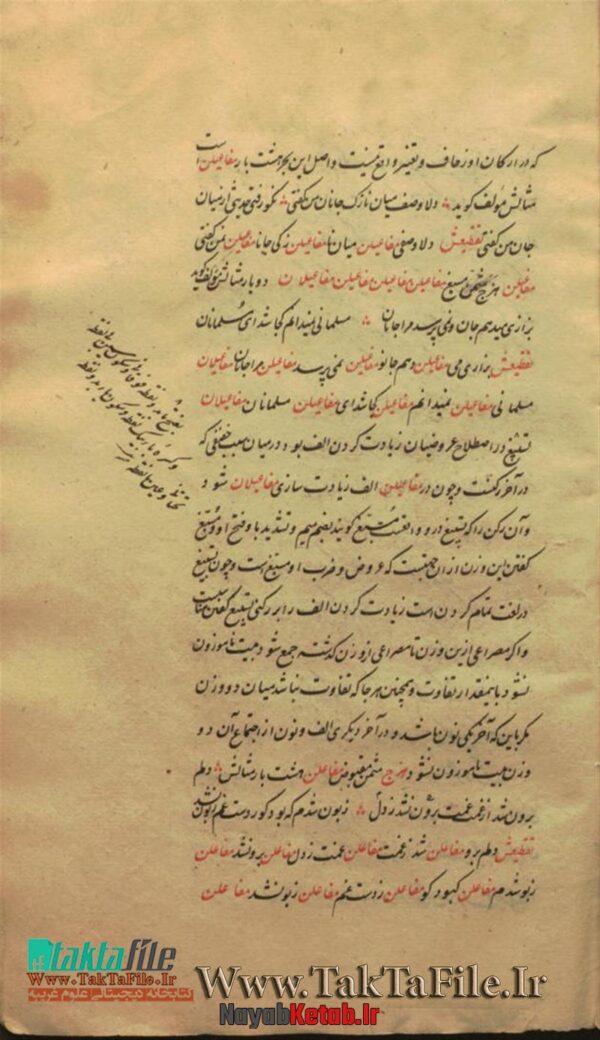 که در ارکان او زحاف و تغییر واقع نیست و اصل این بحر هشت بار مفاعیلن است
مثالش مؤلف گوید دلا وصف میان نازک جانان من گفتی نکو رفتی حدیثی از میان
جان من گفتی تقطیعش دلا وصفی مفاعیلن میان نا مفاعیلن زکی جانا مفاعیلن نمن گفتی
مفاعیلن هزج مثمن مسبغ مفاعیلن مفاعیلن مفاعیلن مفاعیلان دو بار مثالش مؤلف گوید
بزاری میدهم جان و نمی پرسد مرا جانان مسلمانی نمیدانم کجا شد ای مسلمانان
تقطیعش بزاری می مفاعیلن دهم جانو مفاعیلن نمی پرسد مفاعیلن مرا جانان مفاعیلان
مسلمانی مفاعیلن نمیدانم مفاعیلن کجا شد ای مفاعیلن مسلمانان مفاعیلان
تسبیغ در اصطلاح عروضیان زیادت کردن الف بود در میان سبب خفیفی که
در آخر رکنست و چون در مفاعیلن الف زیادت سازی مفاعیلان شود
و آن رکن را که تسبیغ درو واقعست مسبغ گویند بضم میم و تشدید با و فتح او و مسبغ
گفتن این وزن از آن جهتست که عروض و ضرب او مسبغ است و چون تسبیغ
در لغت تمام کردن است زیادت کردن الف را بر رکنی تسبیغ گفتن مناسبست
و اگر مصراعی ازین وزن با مصراعی از وزن گذشته جمع شود بیت ناموزون
نشود باینمقدار تفاوت و همچنین هر جا که تفاوت نباشد میان دو وزن
مگر باین که آخر یکی نون باشد و در آخر دیگری الف و نون از اجتماع آن دو
وزن بیت ناموزون نشود هزج مثمن مقبوض مفاعلن هشت بار مثالش دلم
برون شد از غمت غمت برون نشد ز دل زبون شدم که بود کو ز دست غم زبون نشد
تقطیعش دلم برو مفاعلن شد ز غمت مفاعلن غمت ز دل مفاعلن برو نشد مفاعلن
زبو شدم مفاعلن کبود کو مفاعلن ز دست غم مفاعلن زبو نشد مفاعلن
taktafile
Www.TakTaFile.Ir
کتابخانه دیجیتالی علوم غریبه
Www.TakTaFile.Ir
NayabKetab.Ir